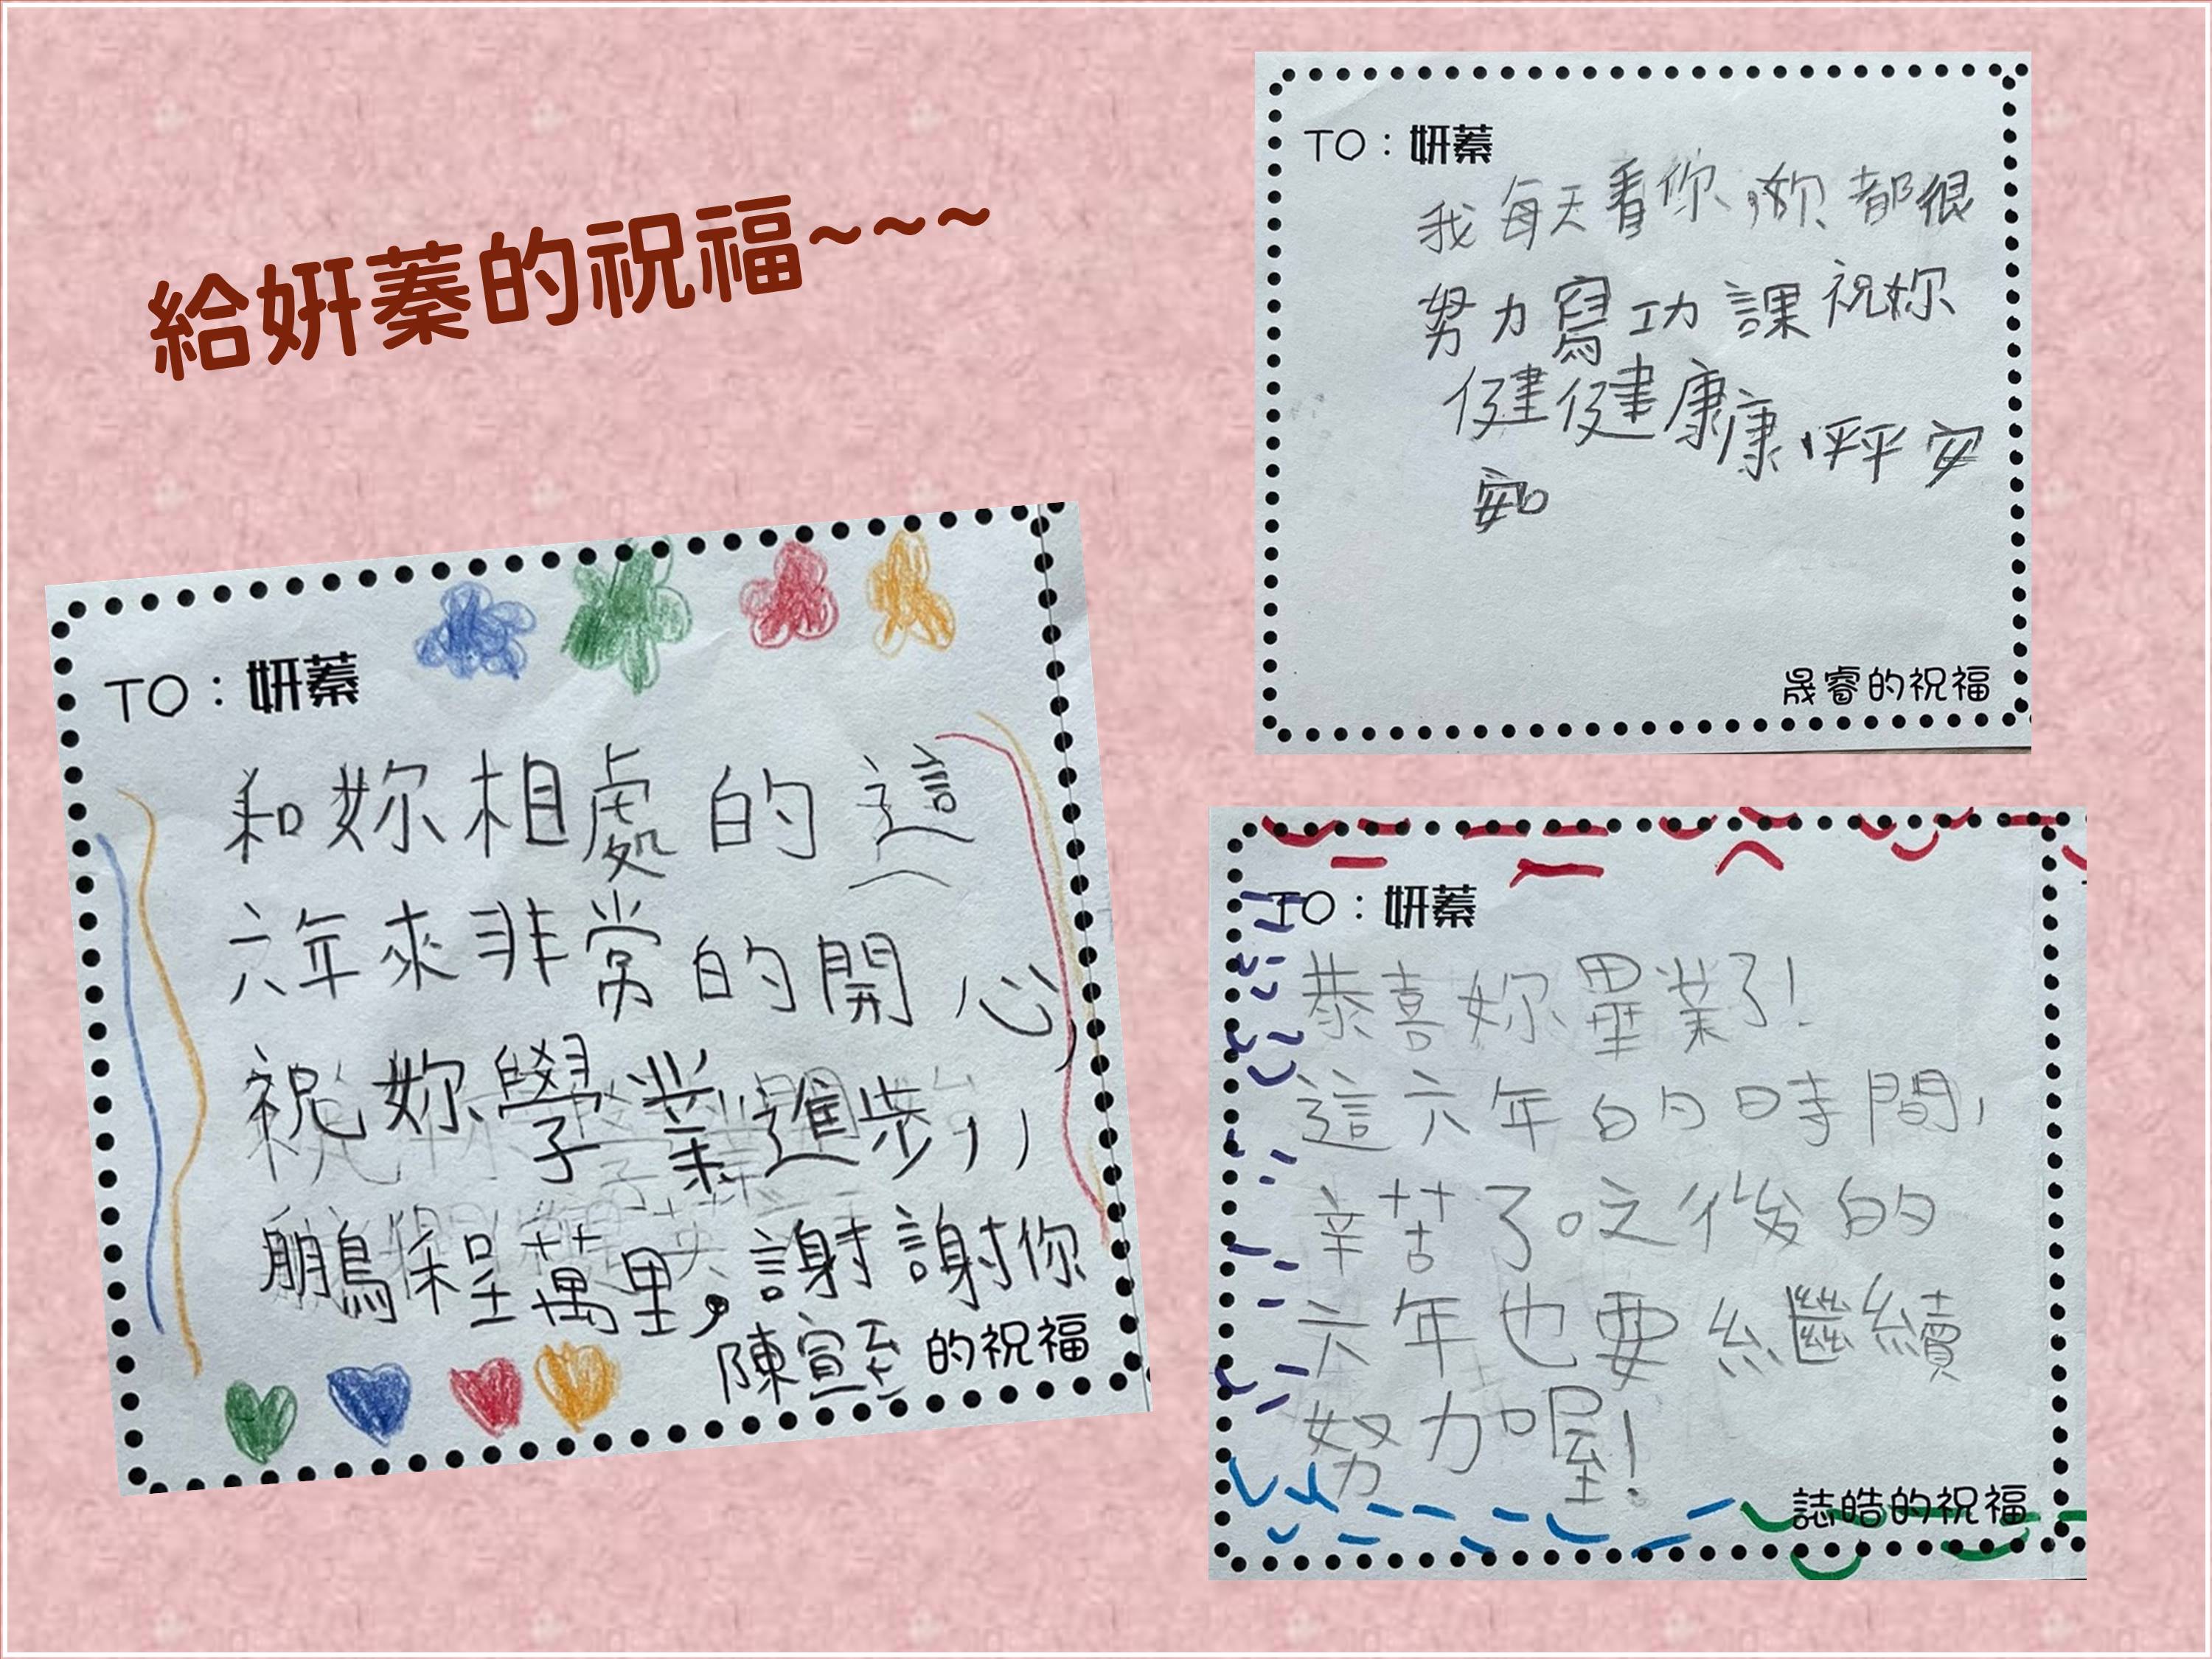 給妍蓁的祝福~~~
TO：妍蓁
和妳相處的這
六年來非常的開心，
祝妳學業進步，
鵬程萬里，謝謝你
陳宣至的祝福
TO：妍蓁
我每天看你，妳都很
努力寫功課祝妳
健健康康，平平安
安。
晟睿的祝福
TO：妍蓁
恭喜妳畢業了！
這六年的時間，
辛苦了。之後的
六年也要繼續
努力喔！
誌皓的祝福